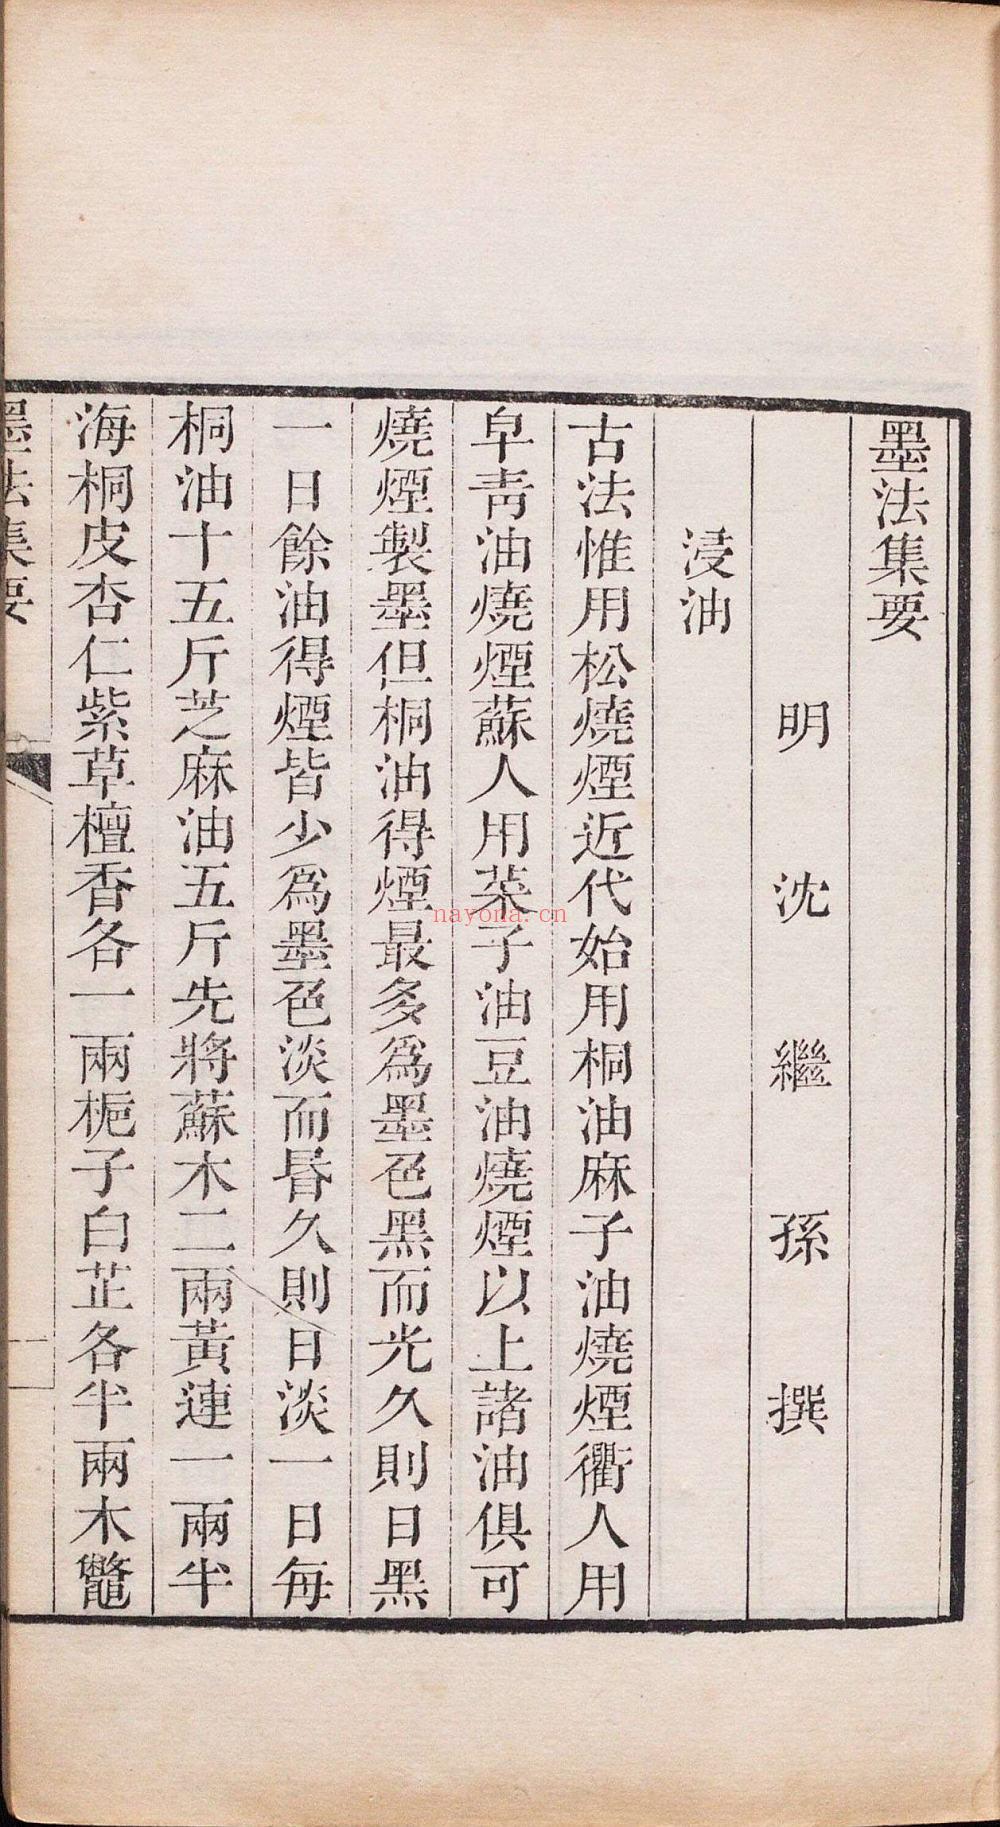 墨法集要
明沈繼孫撰
浸油
古法惟用松燒煙近代始用桐油麻子油燒煙衢人用
皁青油燒煙蘇人用菜子油豆油燒煙以上諸油俱可
燒煙製墨但桐油得煙最多爲墨色黑而光久則日黑
一日餘油得煙皆少爲墨色淡而昬久則日淡一日每
桐油十五斤芝麻油五斤先將蘇木二兩黃連一兩半
海桐皮杏仁紫草檀香各一兩梔子白芷各半兩木鼈
墨法集要
nayona.cn